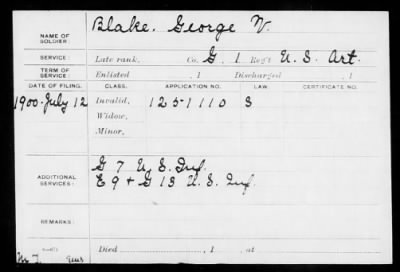 NAME OF SOLDIER: Blake, George V.
SERVICE: Late rank, Co. G, 1 Reg't U. S. Art.
TERM OF SERVICE: Enlisted , 1 Discharged , 1
DATE OF FILING. CLASS. APPLICATION NO. LAW. CERTIFICATE NO.
1900 July 12 Invalid, 1251110 S
Widow,
Minor,
ADDITIONAL SERVICES: G 7 U. S. Inf.
E 9 & G 13 U. S. Inf.
REMARKS:
Died , 1 , at